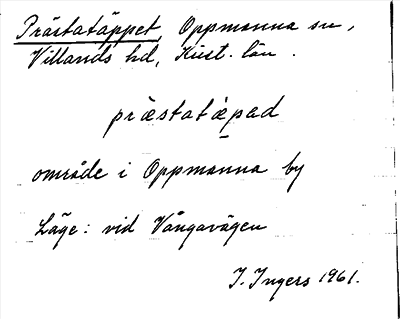 Prästatäppet, Oppmanna sn,
Villands hd, Krist. län.
præstatæpad
område i Oppmanna by
Läge: vid Vångavägen
I. Ingers 1961.